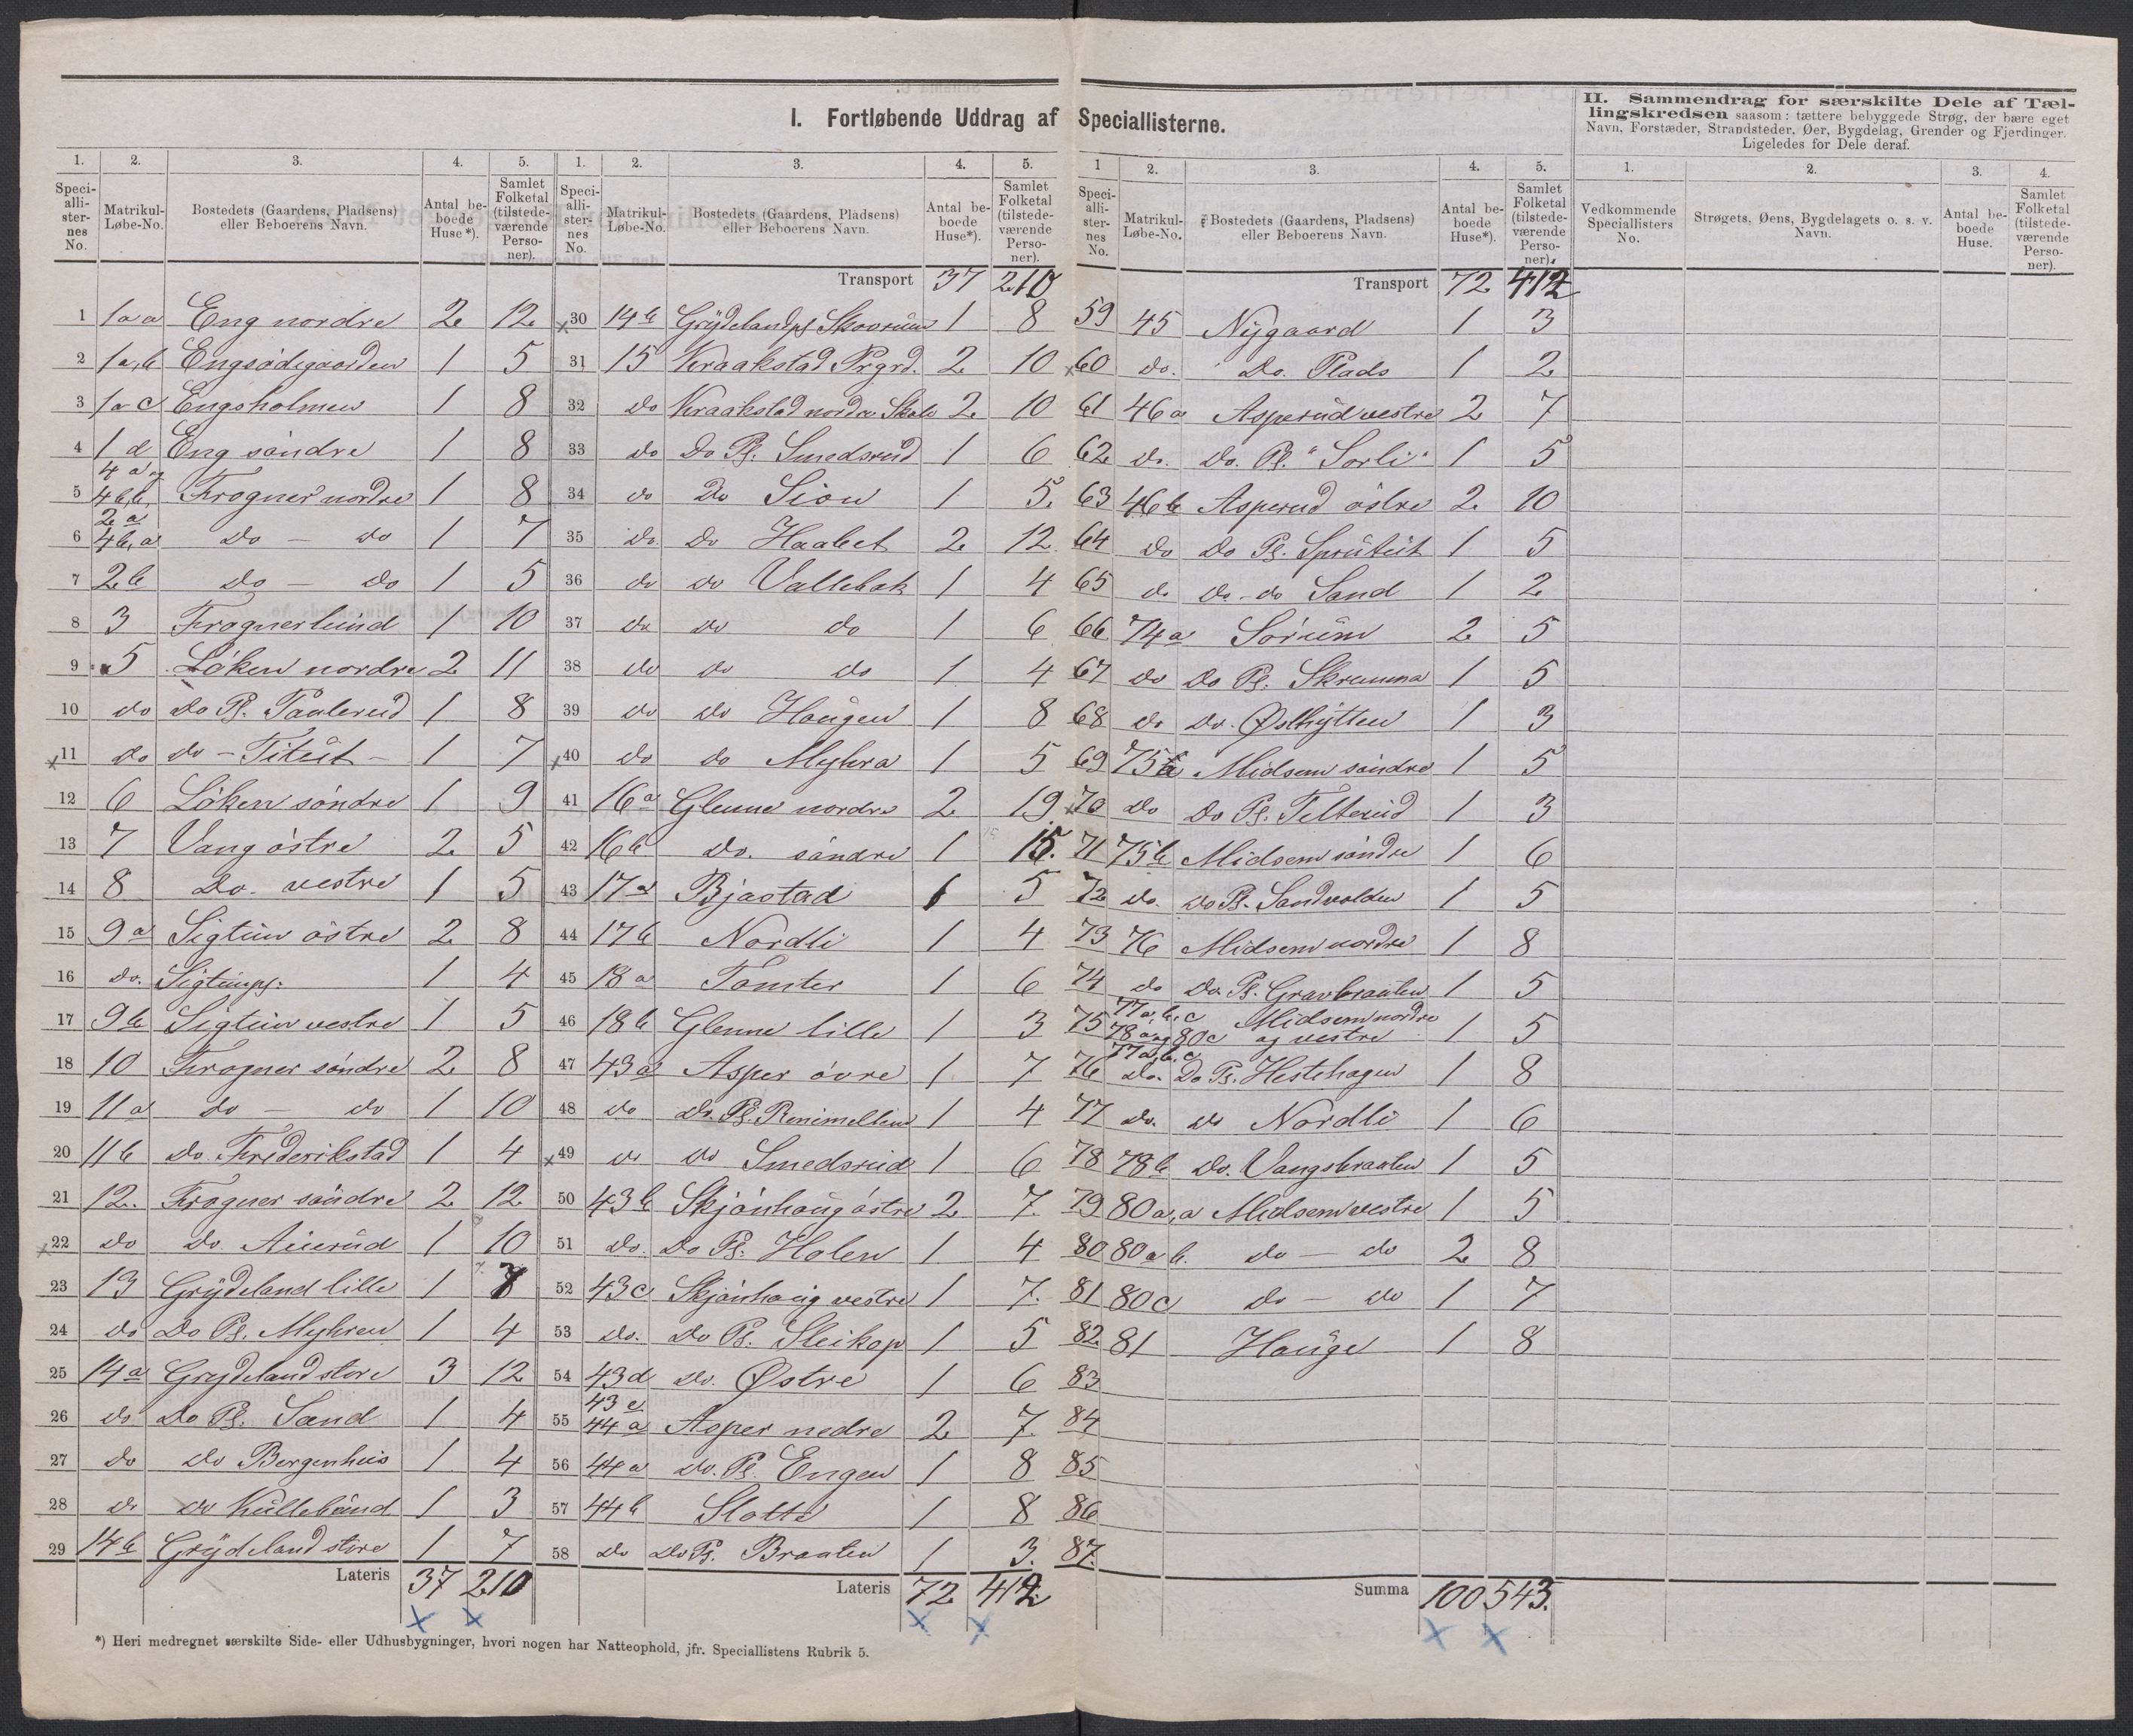 I. Fortløbende Uddrag af Speciallisterne.
II. Sammendrag for særskilte Dele af Tællingskredsen saasom: tættere bebyggede Strøg, der bære eget Navn, Forstæder, Strandsteder, Øer, Bygdelag, Grender og Fjerdinger. Ligeledes for Dele deraf.
1. 2. 3. 4. 5.
Speciallisternes No. | Matrikul-Løbe-No. | Bostedets (Gaardens, Pladsens) eller Beboerens Navn. | Antal beboede Huse*). | Samlet Folketal (tilstedeværende Personer).
1 1aa Eng nordre 2 12
2 1a,b Engsødegaarden 1 5
3 1ac Engsholmen 1 8
4 1d Eng søndre 1 8
5 4a og 4bb, Frogner nordre 1 8
6 2a 4b,a Do — do 1 7
7 2b Do — do 1 5
8 3 Frognerlund 1 10
9 5 Løken nordre 2 11
10 do Do Pl. Paulerud 1 8
x11 do do - Titut - 1 7
12 6 Løken søndre 1 9
13 7 Vang østre 2 5
14 8 Do. vestre 1 5
15 9a Sigtun østre 2 8
16 do. Sigtunpl. 1 4
17 9b Sigtun vestre 1 5
18 10 Frogner søndre 2 8
19 11a do — do 1 10
20 11b do. Frederikstad 1 4
21 12. Frogner søndre 2 12
x22 do do. Auerud 1 10
23 13 Grydeland lille 1 7
24 do Do Pl. Myhren 1 4
25 14a Grydeland store 3 12
26 do Do Pl. Sand 1 4
27 do do Bergenhus 1 4
28 do do Kullebund 1 3
29 14b Grydeland store 1 7
Lateris 37 210
1. 2. 3. 4. 5.
Speciallisternes No. | Matrikul-Løbe-No. | Bostedets (Gaardens, Pladsens) eller Beboerens Navn. | Antal beboede Huse*). | Samlet Folketal (tilstedeværende Personer).
Transport 37 210
x30 14b Grydelandpl Skovruim 1 8
31 15 Kraakstad Prgrd. 2 10
32 do Kraakstad nordre Skole 2 10
33 do Do Pl. Smedsrud 1 6
34 do Do Sion 1 5.
35 do do Haabet 2 12
36 do do Vallebak 1 4
37 do do do 1 6
38 do do do 1 4
39 do do Haugen 1 8
x40 do do Myhra 1 5
41 16a Glenne nordre 2 19
42 16b do. søndre 1 15.
43 17a Bjastad 1 5
44 17b Nordli 1 4
45 18a Tomter 1 6
46 18b Glenne lille 1 3
47 43a Asper øvre 1 7
48 do do. Pl. Renimellem 1 4
x49 do do Smedsrud 1 6
50 43b Skjønhaug østre 2 7.
51 do. do Pl. Holen 1 4
52 43c Skjønhaug vestre 1 7.
53 do. do Pl. Sleikop 1 5
54 43d do. Østre 1 6
55 43e 44a Asper nedre 2 7.
56 44a do. Pl. Engen 1 8
57 44b Slotte 1 8
58 do do Pl. Braaten 1 3.
Lateris 72 412
1 2. 3. 4. 5.
Speciallisternes No. | Matrikul-Løbe-No. | Bostedets (Gaardens, Pladsens) eller Beboerens Navn. | Antal beboede Huse*). | Samlet Folketal (tilstedeværende Personer).
Transport 72 412
59 45 Nygaard 1 3
x60 do. Do. Plads 1 2
61 46a Asperud vestre 2 7
62 do. Do. Pl. "Sorli" 1 5
63 46b Asperud østre 2 10
64 do do Pl. Sprutut 1 5
65 do do - do Sand 1 2
66 74a Sørum 2 5
67 do do Pl. Skramma 1 5
68 do do. Østhytten 1 3
69 75a Midsem søndre 1 5
x70 do do Pl. Telterud 1 3
71 75b Midsem søndre 1 6
72 do. do Pl. Sandvolden 1 5
73 76 Midsem nordre 1 8
74 do do Pl. Gravbraaten 1 5
75 77a,b,c 78a og 80c Midsem nordre og vestre 1 5
76 77a,b,c do. Do Pl. Hestehagen 1 8
77 do. do Nordli 1 6
78 78b do. Vangsbraaten 1 5
79 80a,a Midsem vestre 1 5
80 80ab. do — do 2 8
81 80c do — do 1 7
82 81 Hauge 1 8
83
84
85
86
87.
Summa 100 543.
1. 2. 3. 4.
Vedkommende Speciallisters No. | Strøgets, Øens, Bygdelagets o. s. v. Navn. | Antal beboede Huse. | Samlet Folketal (tilstedeværende Personer).
*) Heri medregnet særskilte Side- eller Udhusbygninger, hvori nogen har Natteophold, jfr. Speciallistens Rubrik 5.